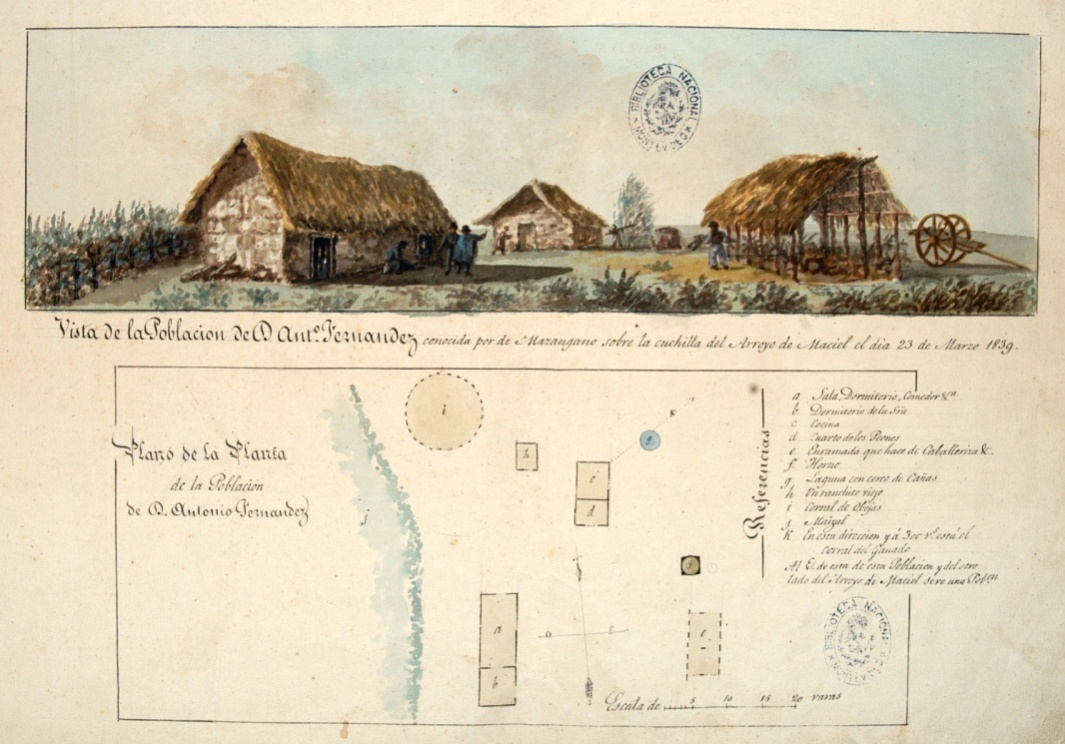 BIBLIOTECA NACIONAL
MONTEVIDEO
Vista de la Poblacion de D Antº. Fernandez conocida por de Mazangano sobre la cuchilla del Arroyo de Maciel el dia 23 de Marzo 1839.
Plano de la Planta
de la Poblacion
de D. Antonio Fernandez
i
h
g
K
c
d
j
f
a
b
O
E
e
Escala de 5 10 15 20 varas
Referencias
a Sala, Dormitorio, Comedor &ª
b. Dormitorio de la Sra
c Cocina
d Cuarto de los Peones
e Enramada que hace de Caballeriza &.
f Horno
g Laguna con cerco de Cañas
h Un ranchito viejo
i Corral de Obejas
j Maizal
K En esta direccion y á 300 vs. está el
corral del Ganado
Al E. de esta de esta Poblacion y del otro
lado del Arroyo de Maciel se ve una Pobon
BIBLIOTECA NACIONAL
MONTEVIDEO